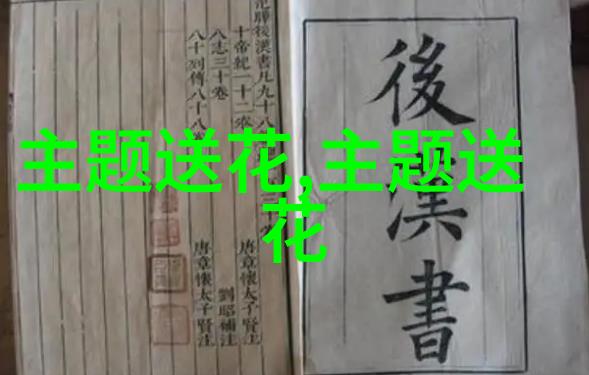 主题送花,主题送
花
後漢書
范曄後漢書凡九十八
十帝紀一十二卷
八志三十卷
八十列傳八十八卷
唐章懷太子賢注
劉昭補注
唐章懷太子賢注